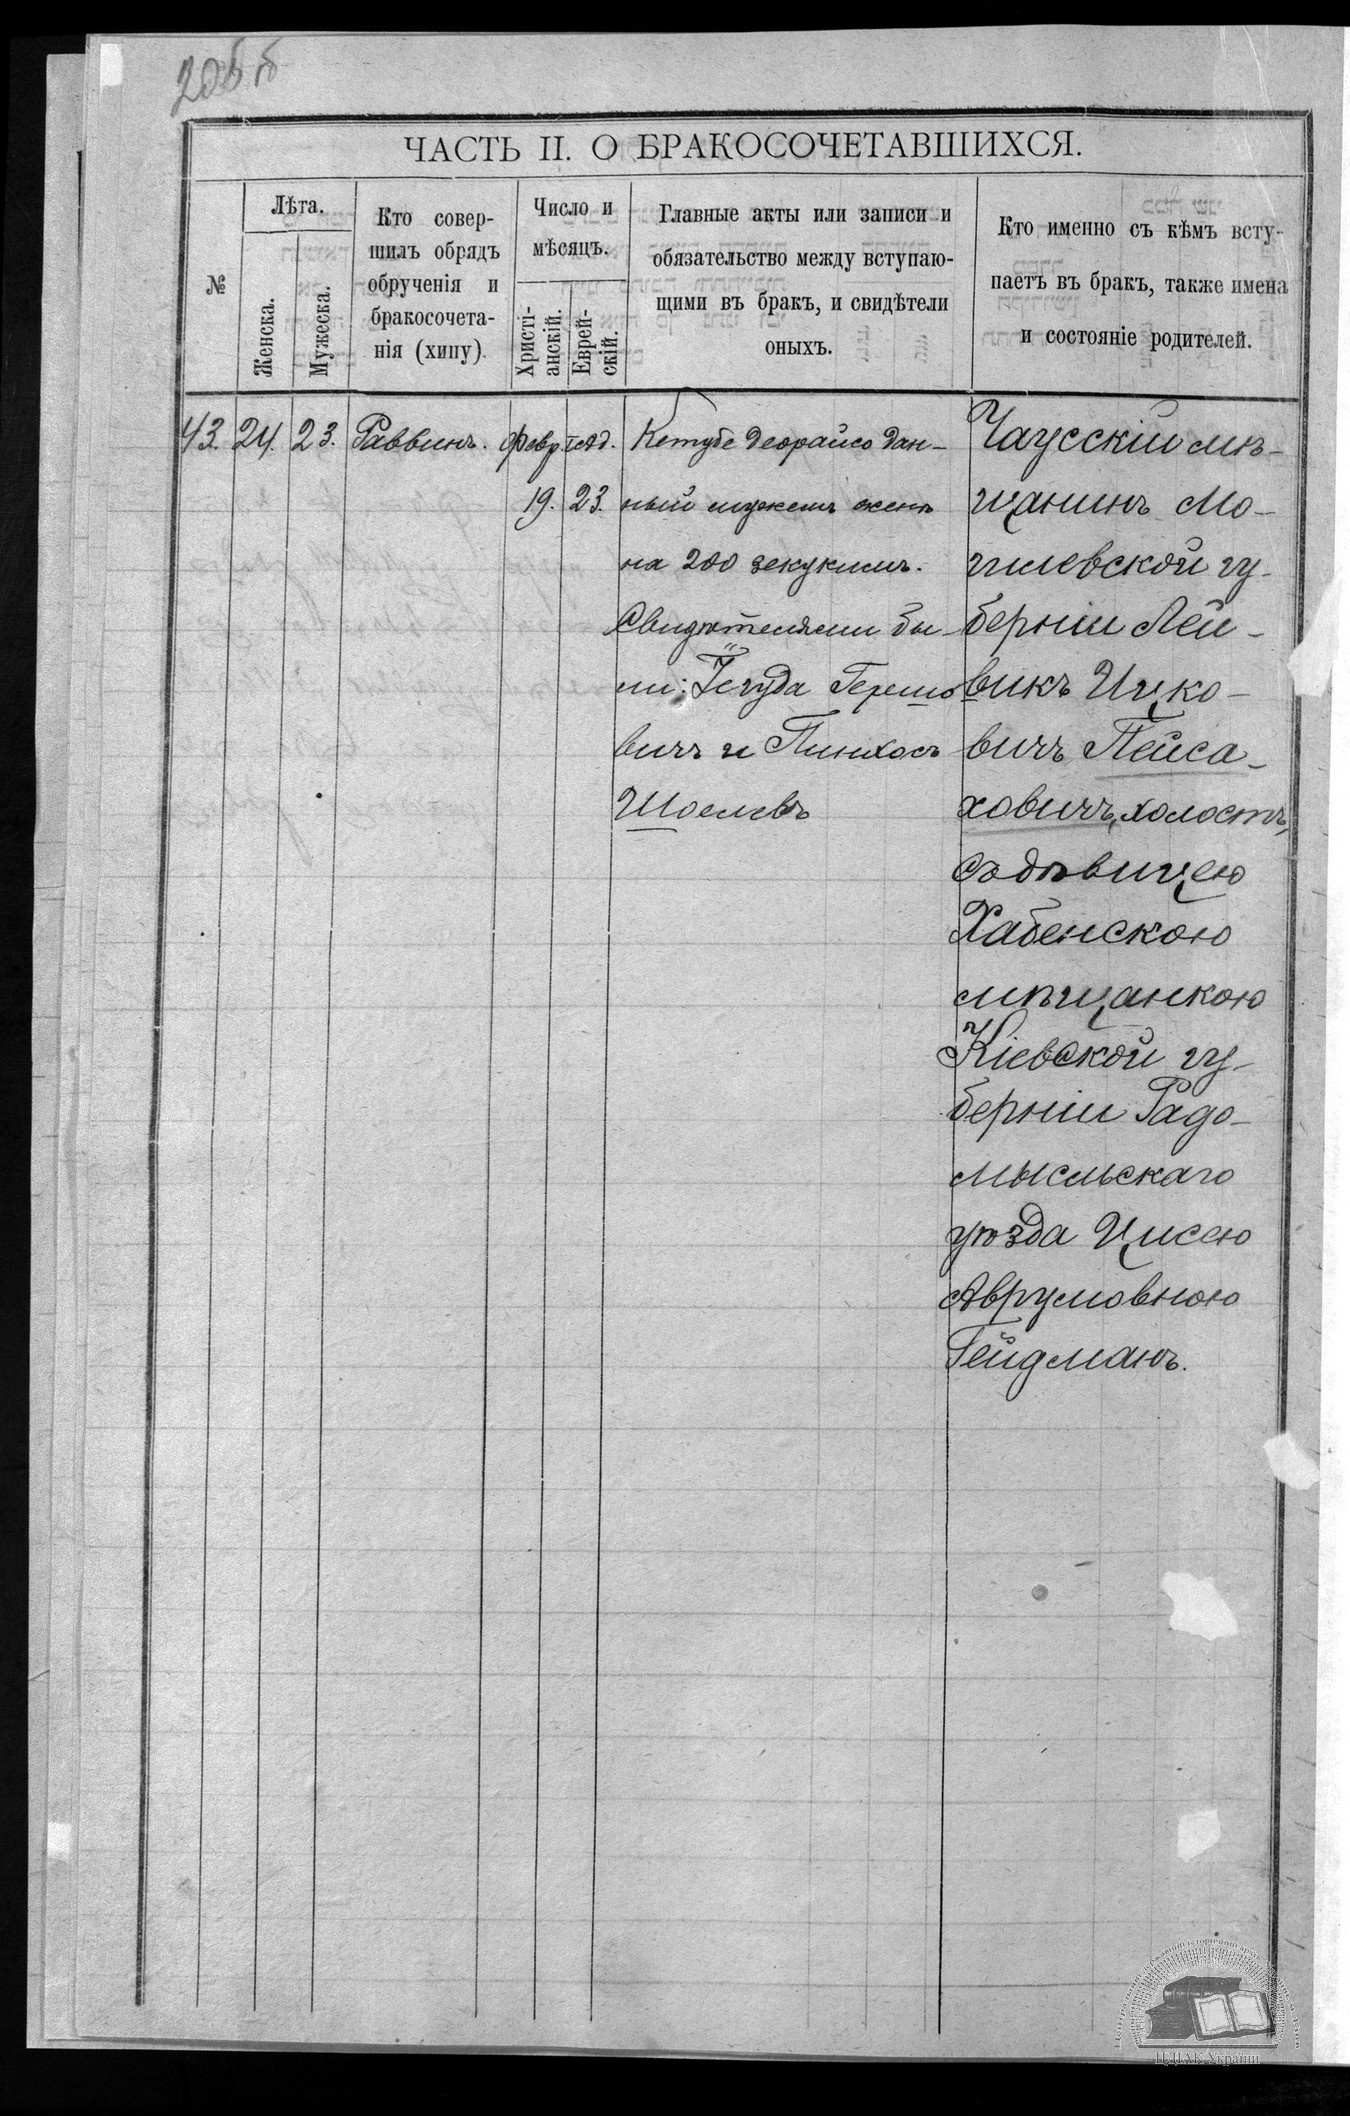 206 б
ЧАСТЬ II. О БРАКОСОЧЕТАВШИХСЯ.
№
Лѣта.
Женска.
Мужеска.
Кто совер-
шилъ обрядъ
обрученія и
бракосочета-
нія (хипу)
Число и
мѣсяцъ.
Христі-
анскій.
Еврей-
скій.
Главные акты или записи и
обязательство между вступаю-
щими въ бракъ, и свидѣтели
оныхъ.
Кто именно съ кѣмъ всту-
паетъ въ бракъ, также имена
и состояніе родителей.
43. 24. 23. Раввинъ. Февр. Iад.
19. 23.
Кетубе деорайсо дан-
ный мужемъ женѣ
на 200 зекукимъ.
Свидѣтелями бы-
ли: Іегуда Гершо
вичъ и Пинхосъ
Шоелевъ
Чаусскій мѣ-
щанинъ Мо-
гилевской гу-
берніи Лей-
викъ Ицко-
вичъ Пейса-
ховичъ, холостъ,
съ дѣвицею
Хабенскою
мѣщанкою
Кіевской гу-
берніи Радо-
мысльскаго
уѣзда Цисею
Аврумовною
Гейдманъ.
ЦДІАК України